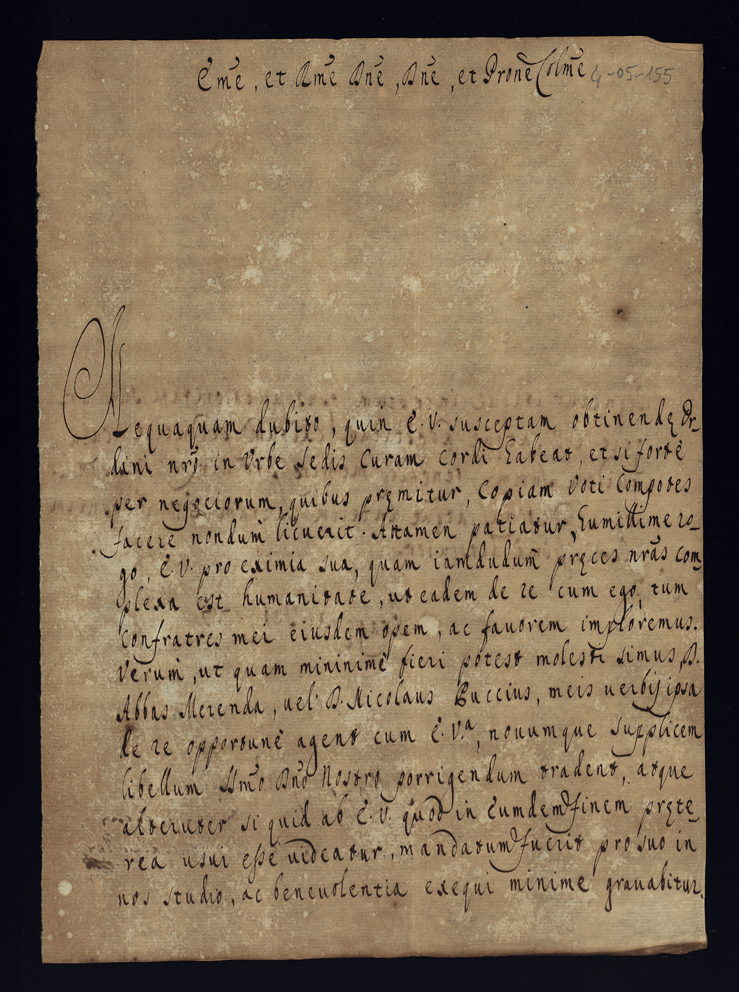 Em̃e, et Rm̃e Dñe, Dñe, et Pronẽ Colm̃e 4-05-155
Nequaquam dubito, quin E.V. susceptam obtinendę Or-
dini nrõ in Urbe Sedis Curam Cordi habeat, et si fortè
per negociorum, quibus pręmitur, Copiam Voti Compotes
facere nondum licuerit. Attamen patiatur, humillime ro-
go, E.V. pro eximia sua, quam iamdudum pręces nrãs com-
plexa est humanitate, ut eadem de re cum ego, tum
Confratres mei eiusdem opem, ac favorem imploremus.
Verum, ut quam mininimè fieri potest molesti simus, D.
Abbas Merenda, uel D. Nicolaus Buccius, meis uerbis ipsa
de re opportunè agent cum E.V.ª, nouumque supplicem
libellum Ssm̃o Dnõ Nostro porrigendum tradent, atque
alteruter si quid ab E.V. quod in eumdem finem pręte-
rea usui esse uideatur, mandatum fuerit pro suo in
nos studio, ac beneuolentia exequi minime grauabitur.